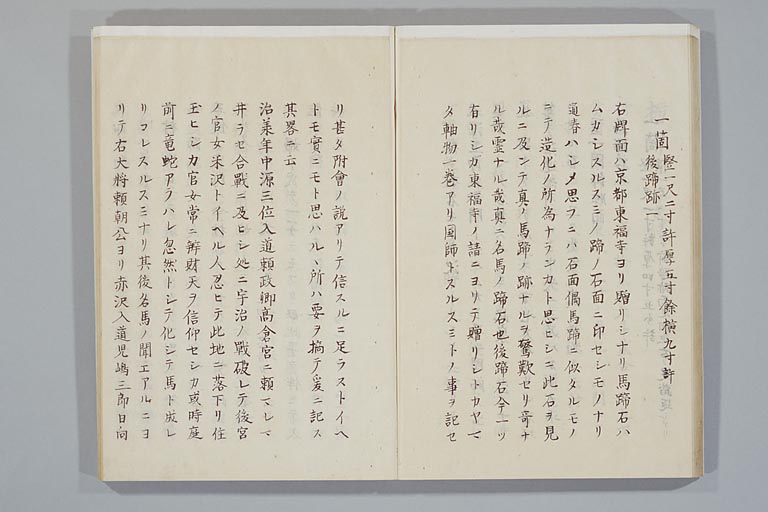 一箇 竪一尺二寸許厚五寸餘横九寸許
後蹄跡一
右牌面ハ京都東福寺ヨリ贈リシナリ馬蹄石ハ
ムカシスルスミノ蹄ノ石面ニ印セシモノナリ
道春ハシメ思フニハ石面偶馬蹄ニ似タルモノ
ニテ造化ノ所為ナランカト思ヒシニ此石ヲ見
ルニ及ンテ真ノ馬蹄ノ跡ナルヲ驚歎セリ奇ナ
ル哉霊ナル哉真ニ名馬ノ蹄石也後蹄石今一ツ
有リシカ東福寺ノ請ニヨリテ贈リシトカヤマ
タ軸物一巻アリ国師トスルスミトノ事ヲ記セ
リ甚タ附會ノ説アリテ信スルニ足ラストイヘ
トモ實ニモト思ハルヽ所ハ要ヲ摘テ爰ニ記ス
其畧ニ云
治羕年中源三位入道頼政卿高倉宮ニ頼マレマ
井ラセ合戰ニ及ヒシ処ニ宇治ノ戰破レテ後宮
ノ官女米沢トイヘル人忍ヒテ此地ニ落下リ住
玉ヒシカ官女常ニ辨財天ヲ信仰セシカ或時庭
前ニ竜蛇アラハレ忽然トシテ化シテ馬ト成レ
リコレスルスミナリ其後名馬ノ聞エアルニヨ
リテ右大將頼朝公ヨリ赤沢入道児嶋三郎日向